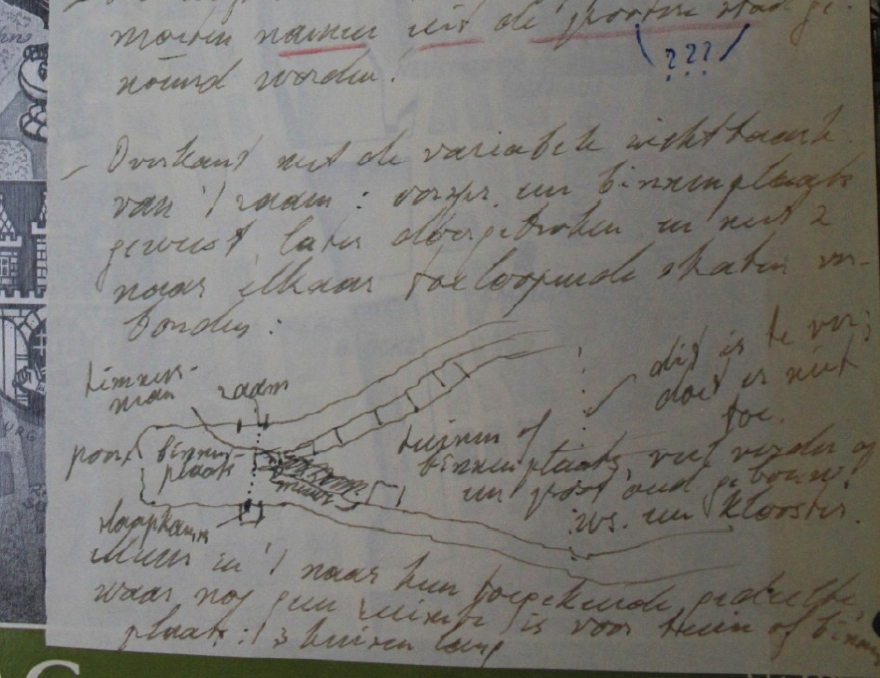 moeten namen uit de grootste stad ge-
noemd worden!
???
– Overkant met de variabele zichtbaarh.
van 't raam: vorige een binnenplaats
geweest later doorgetrokken en met 2
naar elkaar toelopende straten ver-
bonden:
timmer-
man
raam
poort
binnen-
plaats
slaapkamer
muur
tuinen of
binnenplaats, niet verder of
een groot oud gebouw
zvs. een klooster.
dit is te ver;
doet er niet
toe.
Alleen in 't naar hun toegekeerde gedeelte
waar nog geen ruimte is voor tuin of binnen
plaats: 3 huizen lang